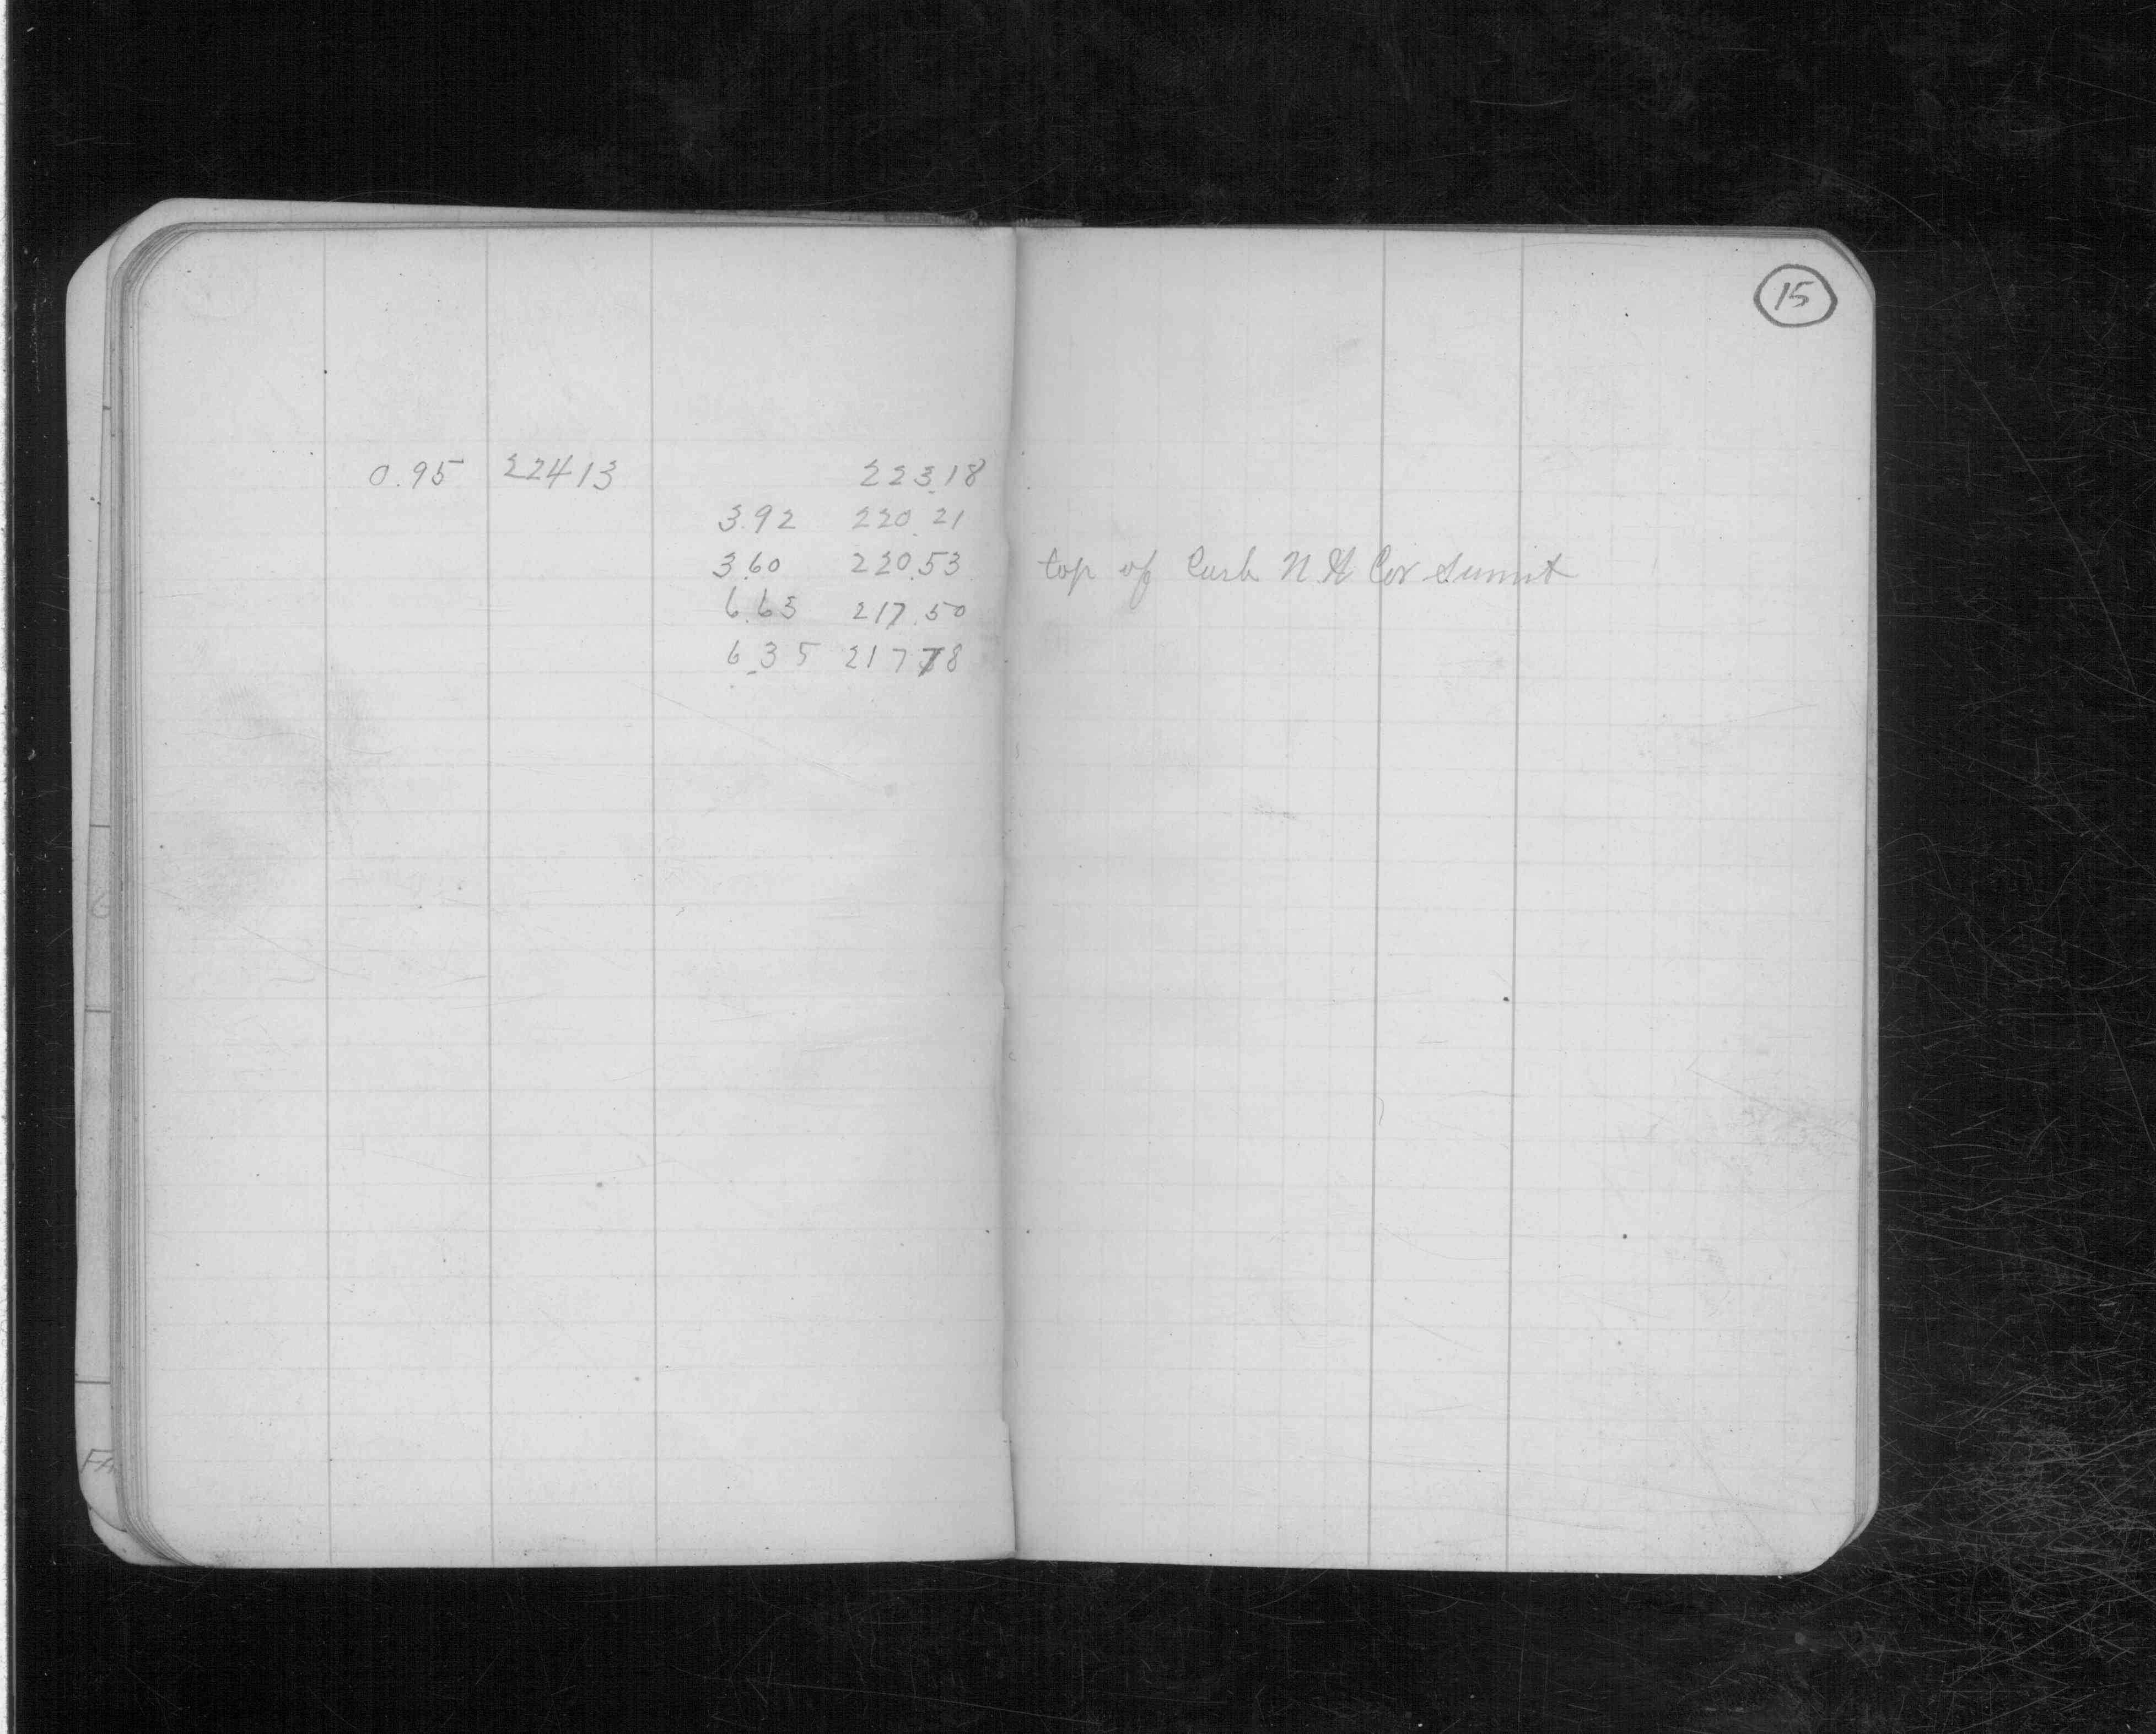 15
0.95 22413 223.18
3.92 220.21
3.60 220.53 top of Curb N. Cor Summit
6.63 217.50
6.35 217 78